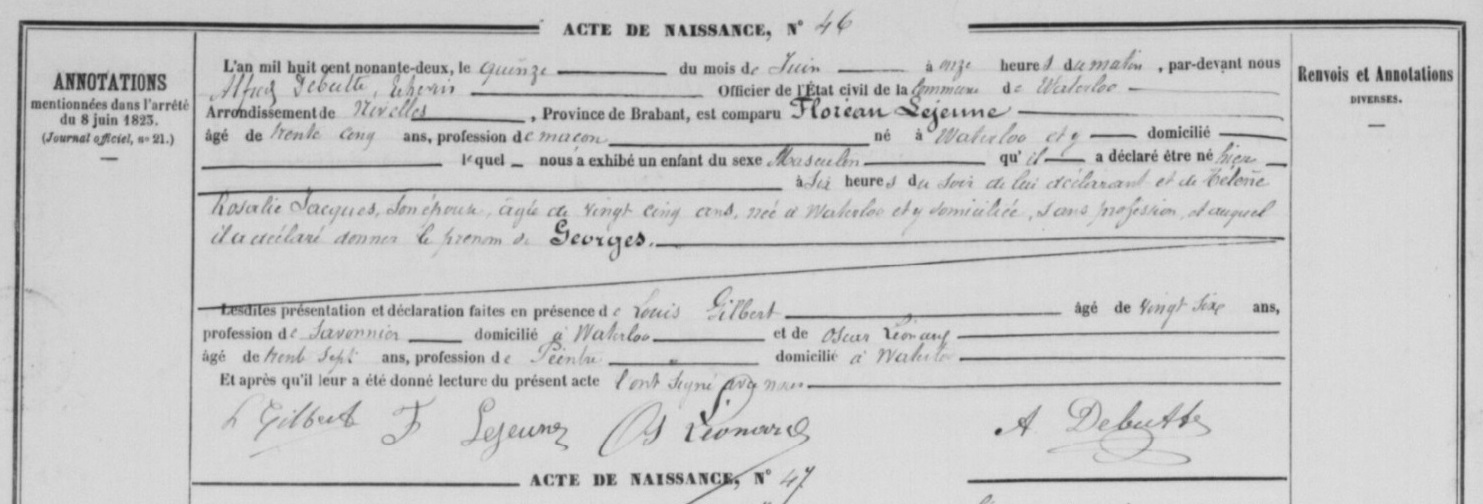 ACTE DE NAISSANCE, N° 46
ANNOTATIONS
mentionnées dans l'arrêté
du 8 juin 1823.
(Journal officiel, n° 21.)
Renvois et Annotations
DIVERSES.
L'an mil huit cent nonante-deux, le quinze du mois de Juin à onze heures du matin, par-devant nous
Alfred Debutte, Echevin Officier de l'État civil de la Commune de Waterloo
Arrondissement de Nivelles, Province de Brabant, est comparu Floréan Lejeune
âgé de trente cinq ans, profession de maçon né à Waterloo et y domicilié
lequel nous a exhibé un enfant du sexe Masculin qu'il a déclaré être né hier
à six heures du soir de lui déclarant et de
Rosalie Jacques, son épouse, âgée de vingt cinq ans, née à Waterloo et y domiciliée, sans profession, et auquel
il a déclaré donner le prénom de Georges.
Lesdites présentation et déclaration faites en présence de Louis Gilbert âgé de vingt six ans,
profession de Savonnier domicilié à Waterloo et de Oscar Léonard
âgé de trente sept ans, profession de Peintre domicilié à Waterloo
Et après qu'il leur a été donné lecture du présent acte l'ont signé avec nous
L Gilbert F Lejeune Os Léonard A. Debutte
ACTE DE NAISSANCE, N° 47